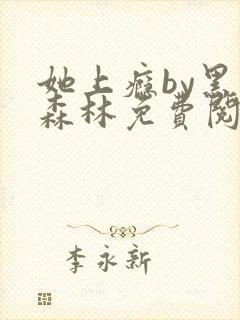 她上瘾by黑
森林免费阅
李永新